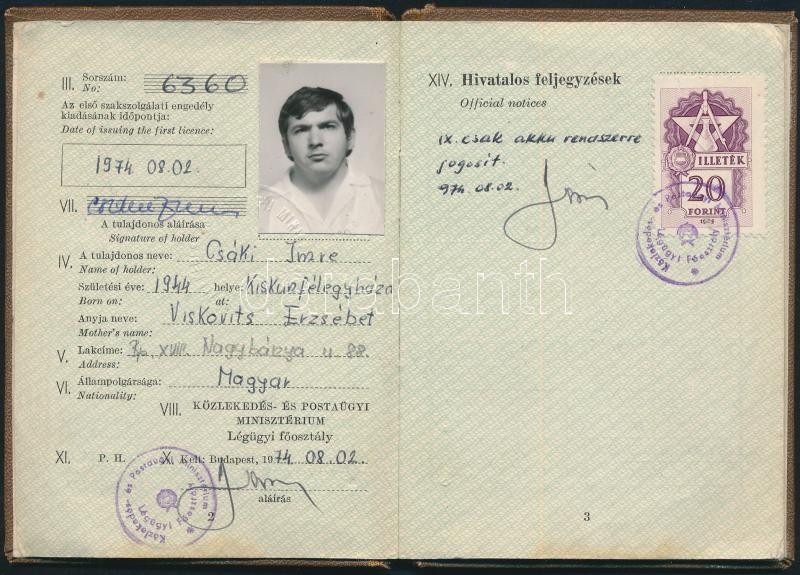 III. Sorszám:
No: 6360
Az első szakszolgálati engedély
kiadásának időpontja:
Date of issuing the first licence:
1974 08.02.
VII.
A tulajdonos aláírása
Signature of holder
IV. A tulajdonos neve: Csáki Imre
Name of holder:
Születési éve: 1944 helye: Kiskunfélegyháza
Born on: at:
Anyja neve: Viskovits Erzsébet
Mother's name:
V. Lakcíme: Bp. XVIII. Nagybánya u 88.
Address:
VI. Állampolgársága: Magyar
Nationality:
VIII. KÖZLEKEDÉS- ÉS POSTAÜGYI
MINISZTÉRIUM
Légügyi főosztály
XI. P. H. X. Kelt: Budapest, 1974. 08.02.
aláírás
Közlekedés- és Postaügyi Minisztérium
Légügyi Főosztály
2
XIV. Hivatalos feljegyzések
Official notices
IX. csak akku rendszerre
jogosit.
974.08.02.
ILLETÉK
20
FORINT
Közlekedés- és Postaügyi Minisztérium
Légügyi Főosztály
3
darabanth